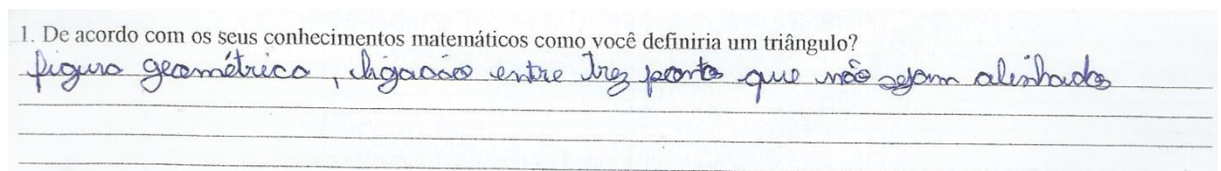 1. De acordo com os seus conhecimentos matemáticos como você definiria um triângulo?
figura geométrica, ligação entre trez pontos que não sejam alinhados